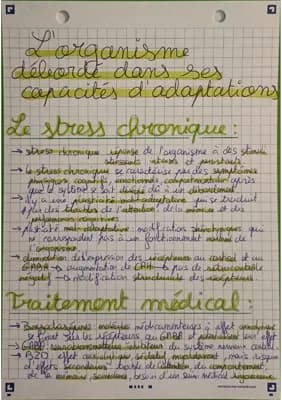 L'organisme
débordé dans ses
capacités d'adaptations
Le stress chronique :
→ stress chronique : réponse de l'organisme à des stimuli
stressants intenses et
→ le stress chronique se caractérise par des symptômes
émotionnels, comportementaux après
que le système se soit déréglé dû à un débordement
→ il y a une plasticité mal-adaptative qui se traduit
par des troubles de l'attention, de la mémoire et des
performances cognitives
→ plasticité mal-adaptative : modifications qui
ne correspondent pas à un fonctionnement normal de
l'organisme
→ diminution de l'expression des récepteurs au cortisol et au
GABA → augmentation de CRH → pas de rétrocontrôle
négatif → modification structurelle des
Traitement médical :
→ Benzodiazépines : molécules médicamenteuses à effet anxiolytique
se fixent sur les récepteurs au GABA et leur effet
→ GABA : neurotransmetteur inhibiteur du système nerveux central
→ BZD : effet anxiolytique, sédatif, mais risques
d'effets secondaires : de l'attention, du comportement,
de la mémoire, besoin d'un suivi médical